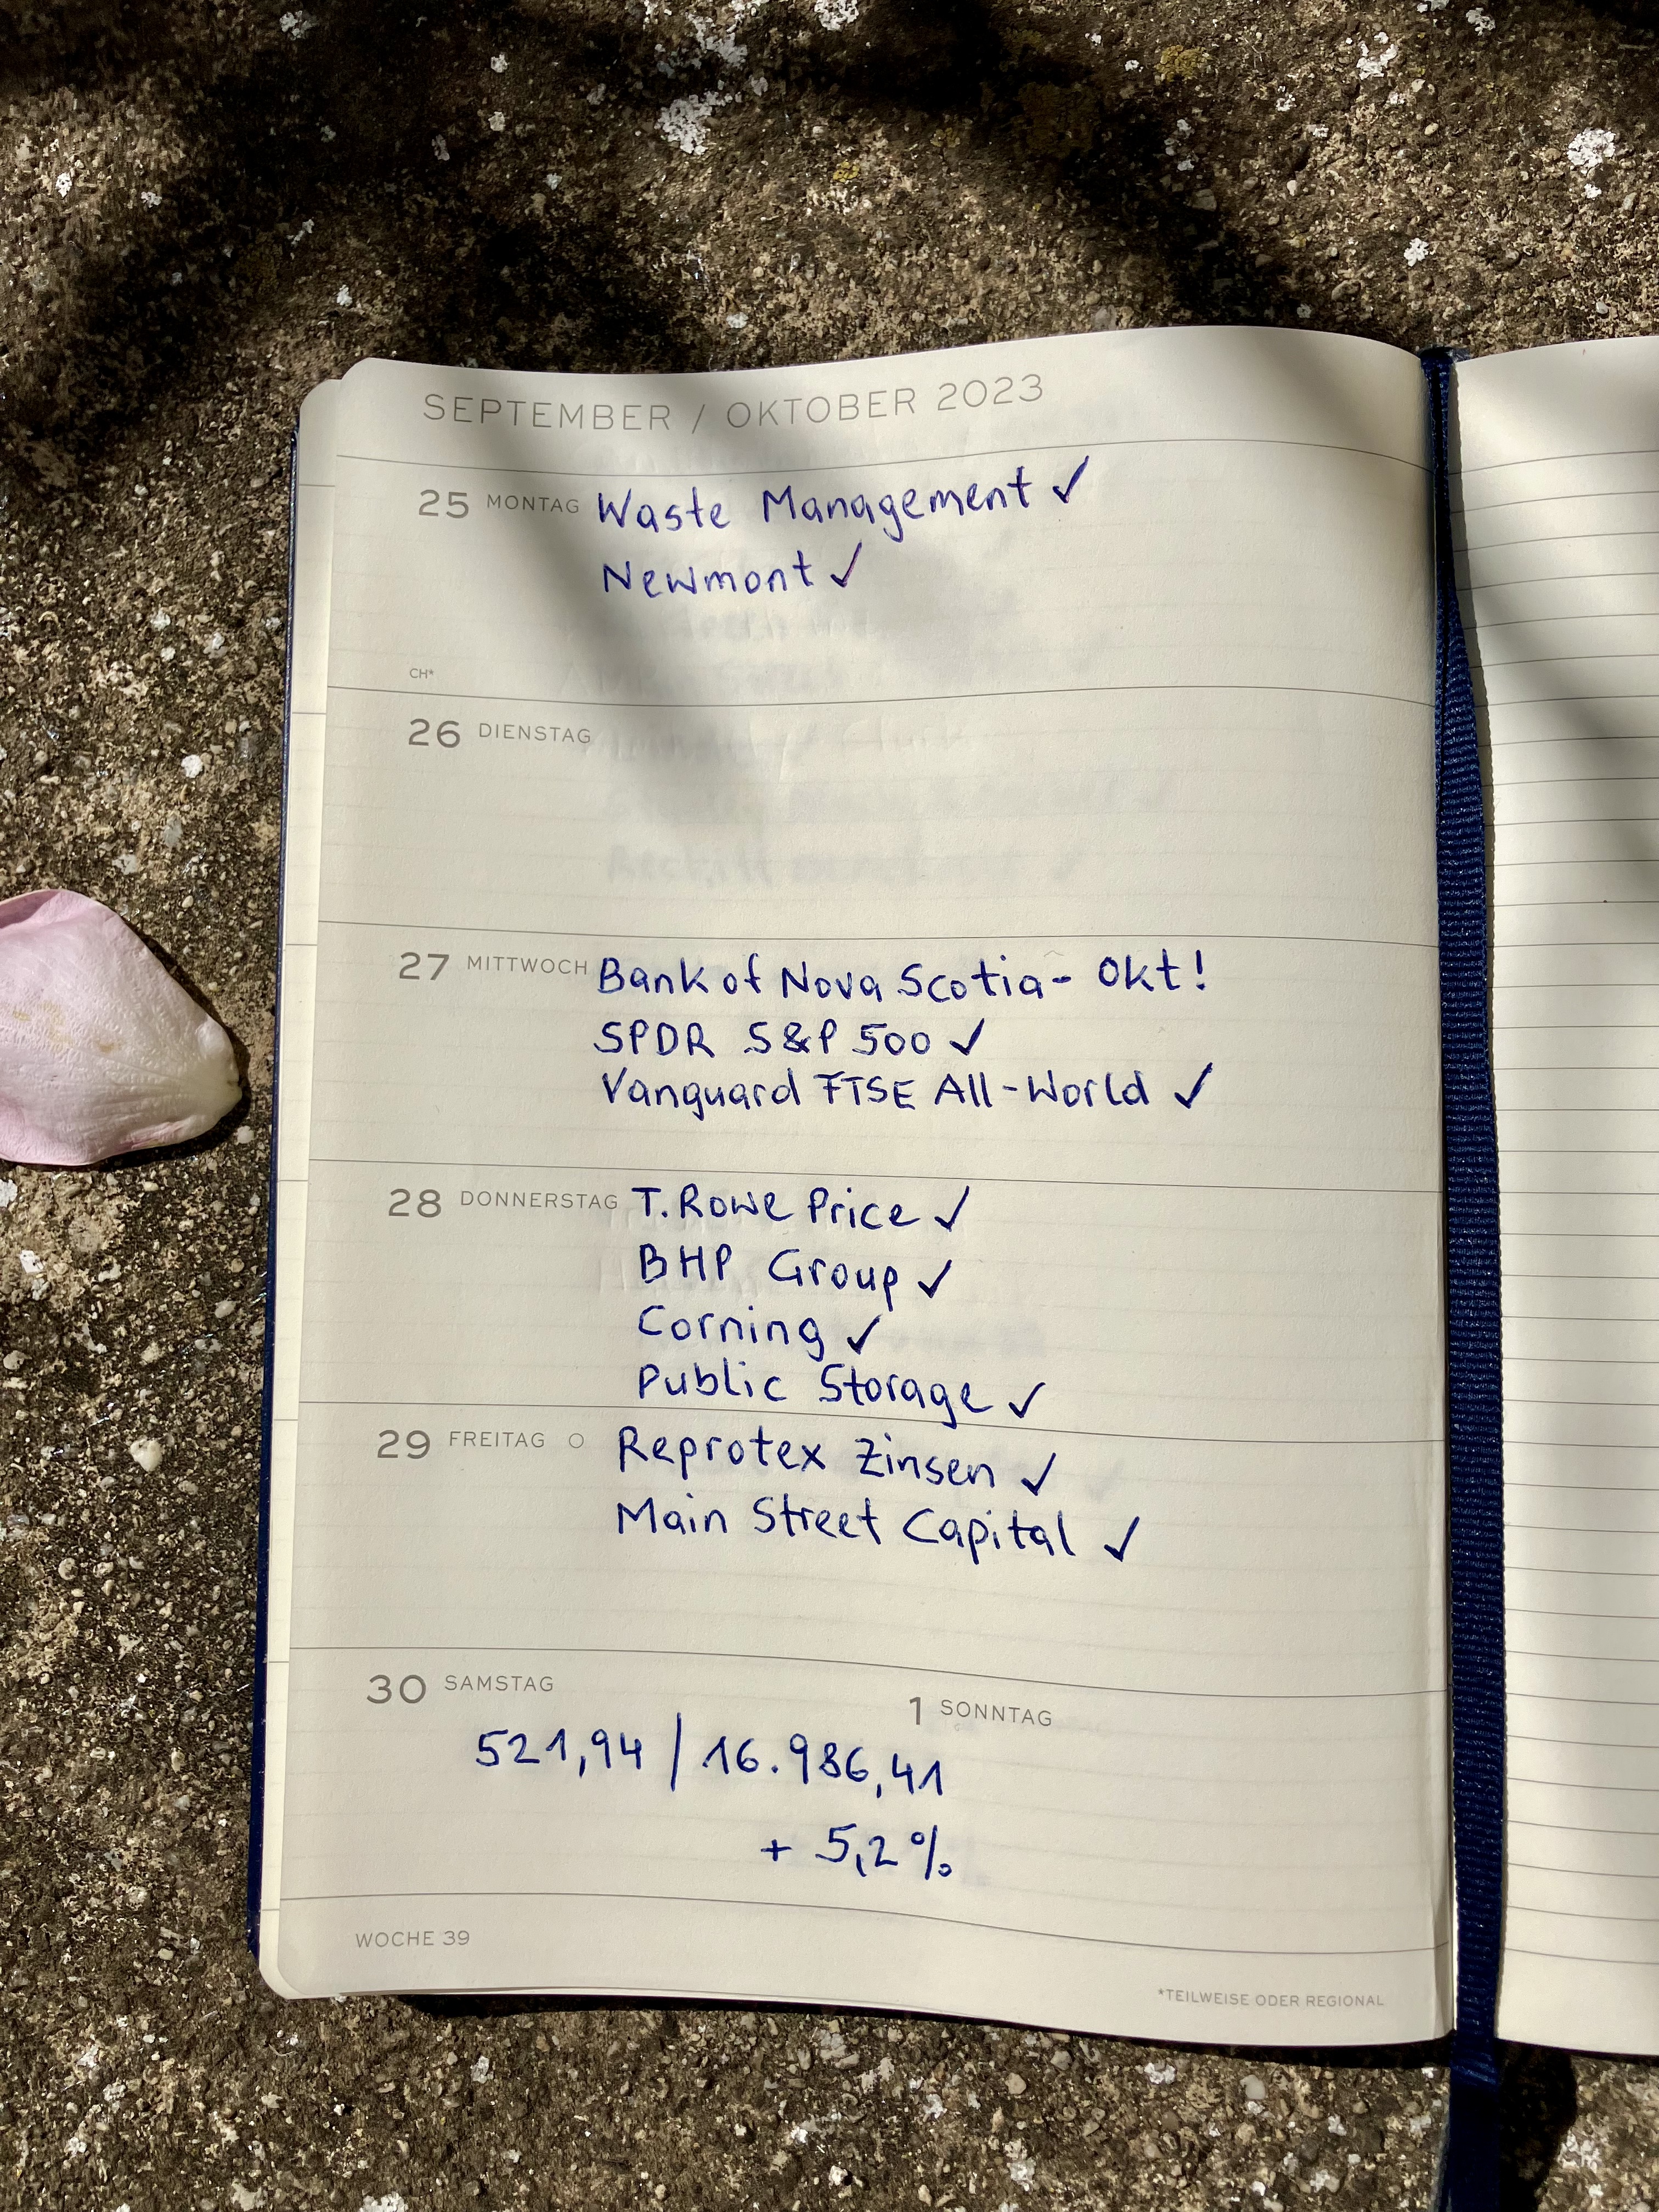 SEPTEMBER / OKTOBER 2023
25 MONTAG Waste Management ✓
Newmont ✓
CH*
26 DIENSTAG
27 MITTWOCH Bank of Nova Scotia - Okt!
SPDR S&P 500 ✓
Vanguard FTSE All-World ✓
28 DONNERSTAG T. Rowe Price ✓
BHP Group ✓
Corning ✓
Public Storage ✓
29 FREITAG ○ Reprotex Zinsen ✓
Main Street Capital ✓
30 SAMSTAG
1 SONNTAG
521,94 / 16.986,41
+ 5,2%
WOCHE 39
*TEILWEISE ODER REGIONAL